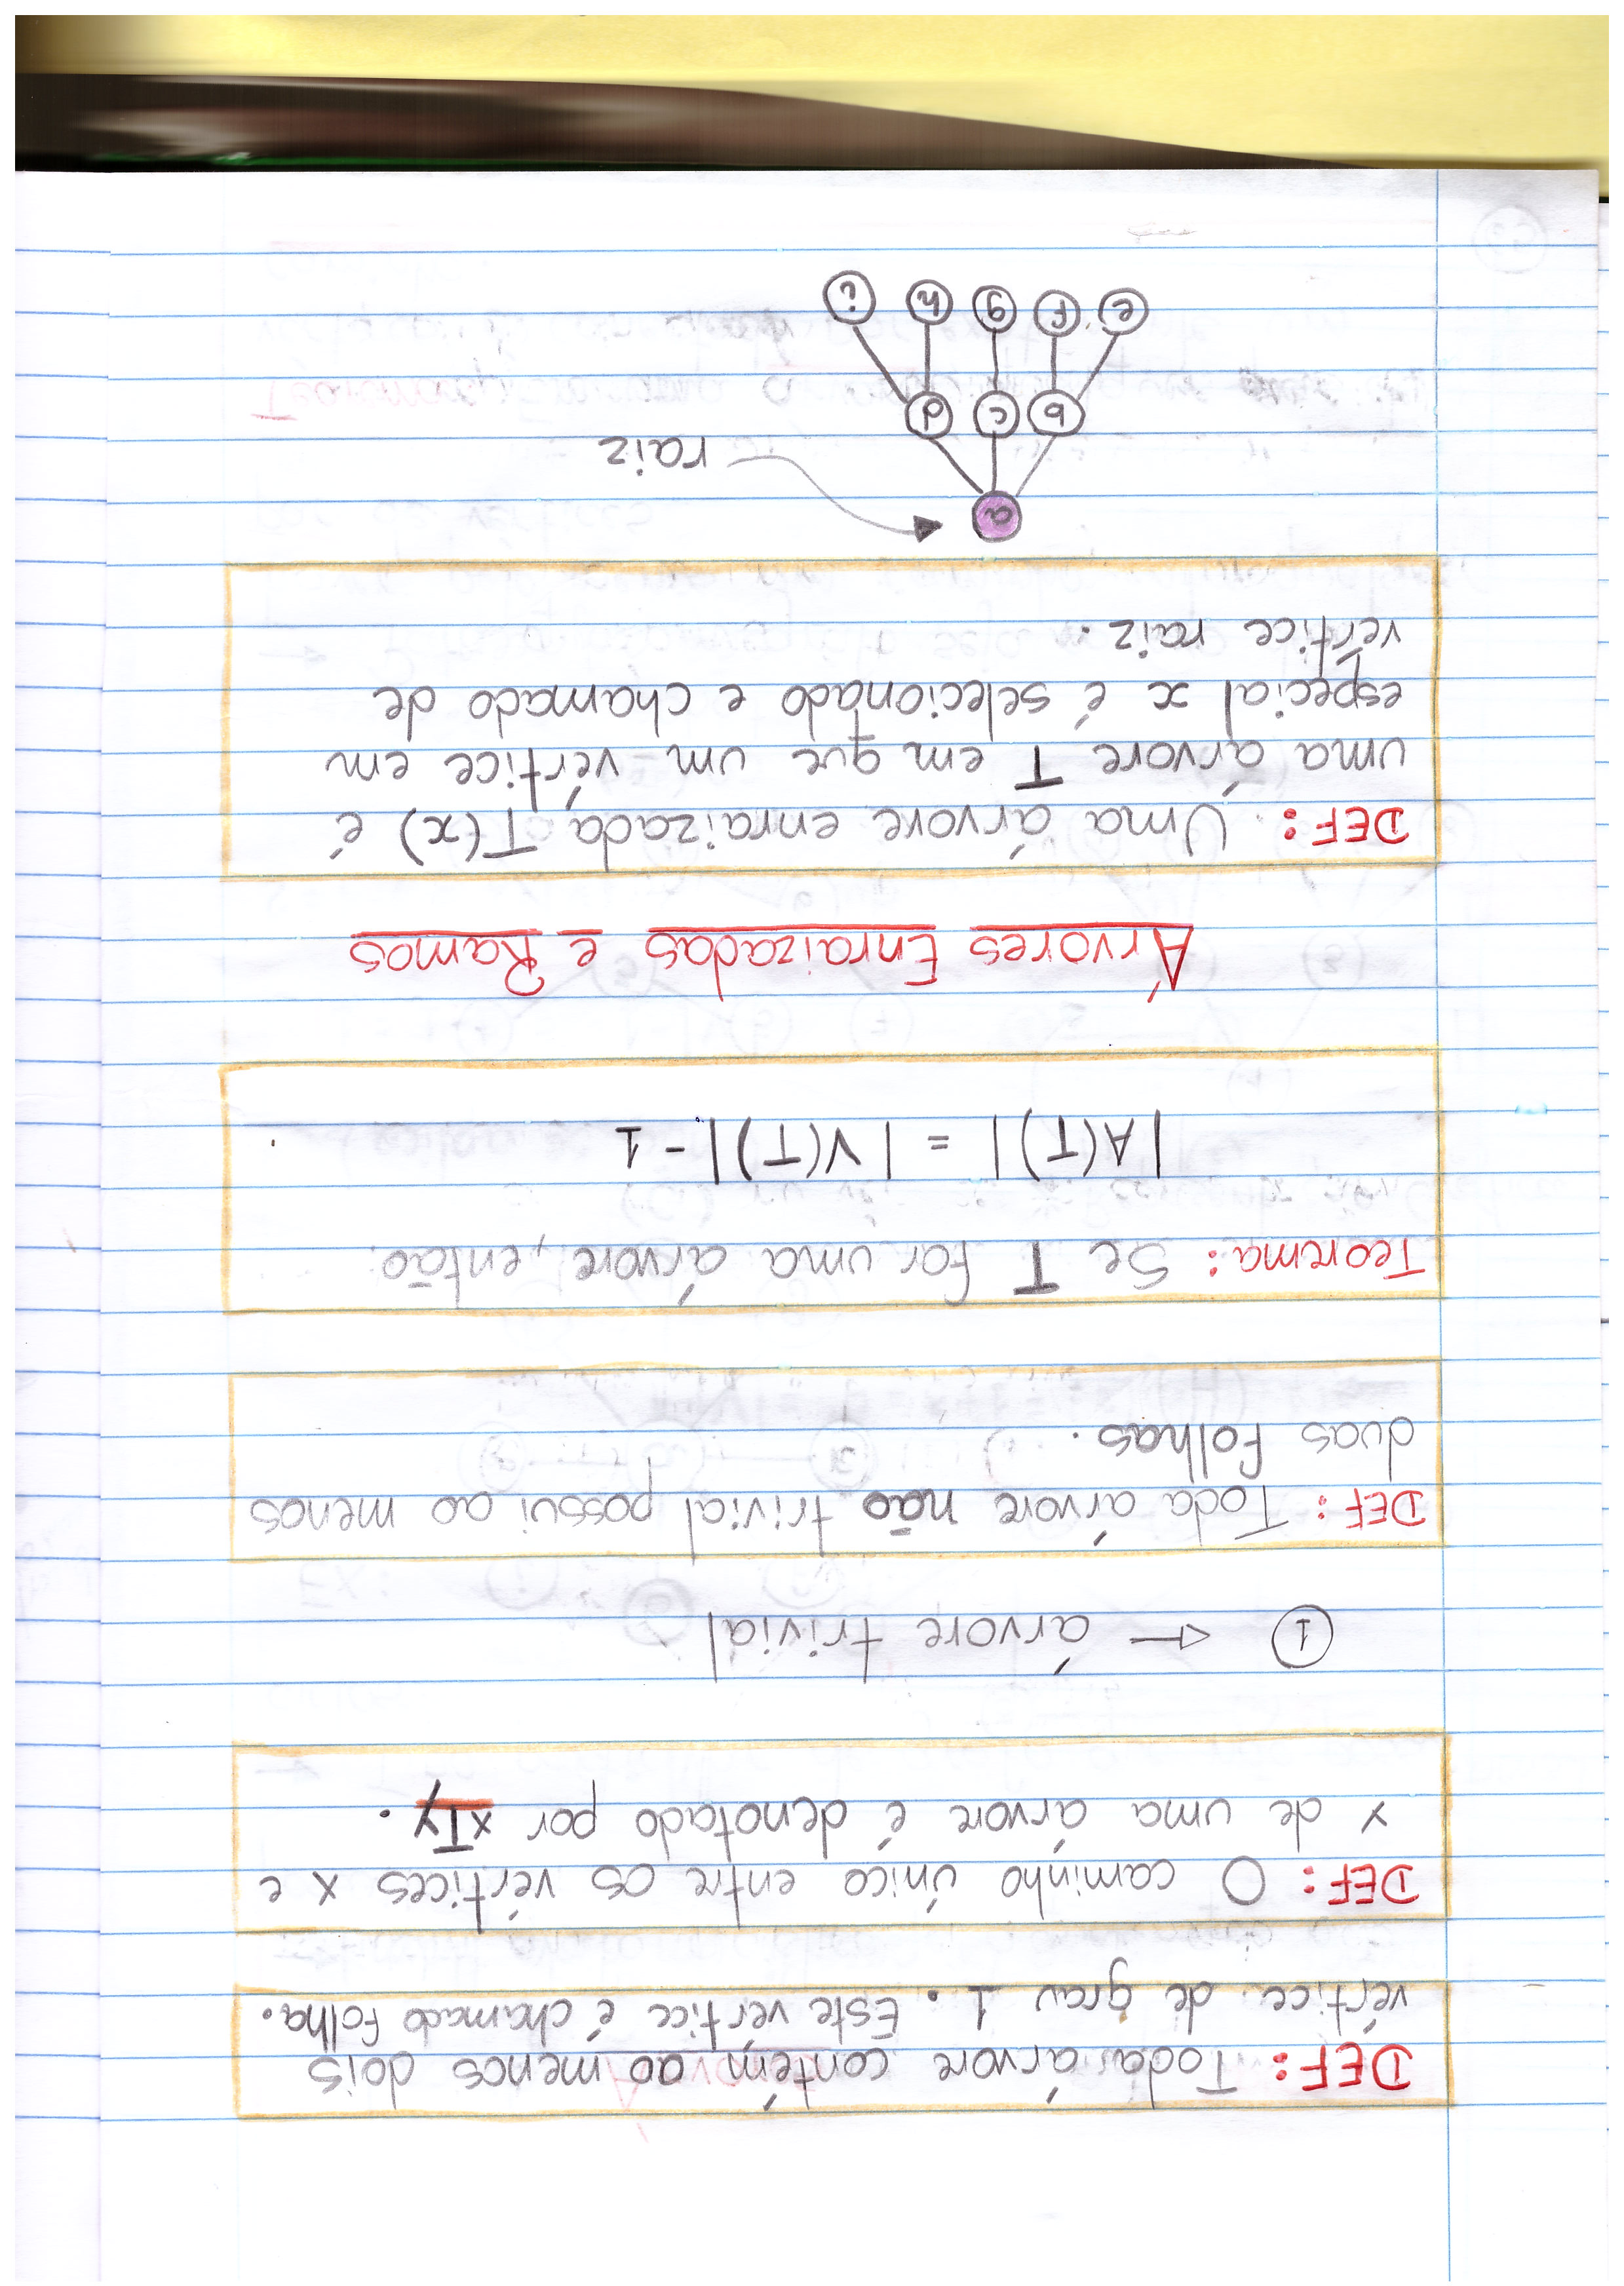 DEF: Toda árvore contém ao menos dois
vértice de grau 1. Este vértice é chamado folha.
DEF: O caminho único entre os vértices x e
x de uma árvore é denotado por xTy.
1 ← árvore trivial
DEF: Toda árvore não trivial possui ao menos
duas folhas.
Teorema: Se T for uma árvore, então
|A(T)| = |V(T)| - 1
Árvores Enraizadas e Ramos
DEF: Uma árvore enraizada T(x) é
uma árvore T em que um vértice em
especial x é selecionado e chamado de
vértice raiz.
a
raiz
b c d
e f g h i